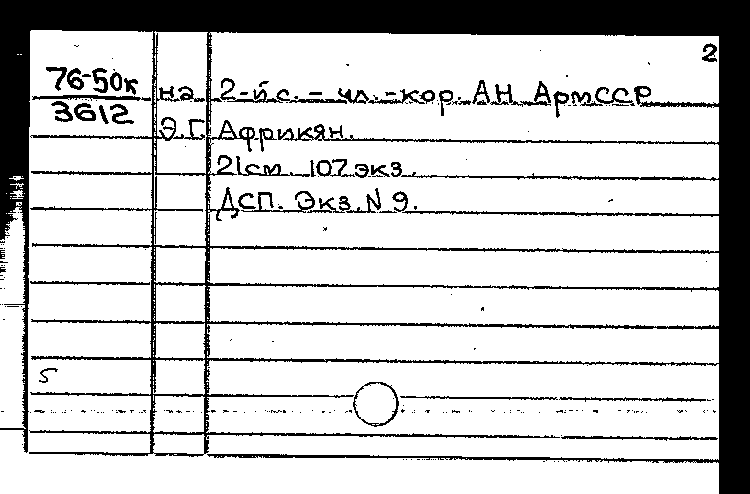 2
76-50к на 2-й с. - чл.-кор. АН АрмССР
3612
Э.Г. Африкян.
21см. 107 экз.
ДСП. Экз. N 9.
5